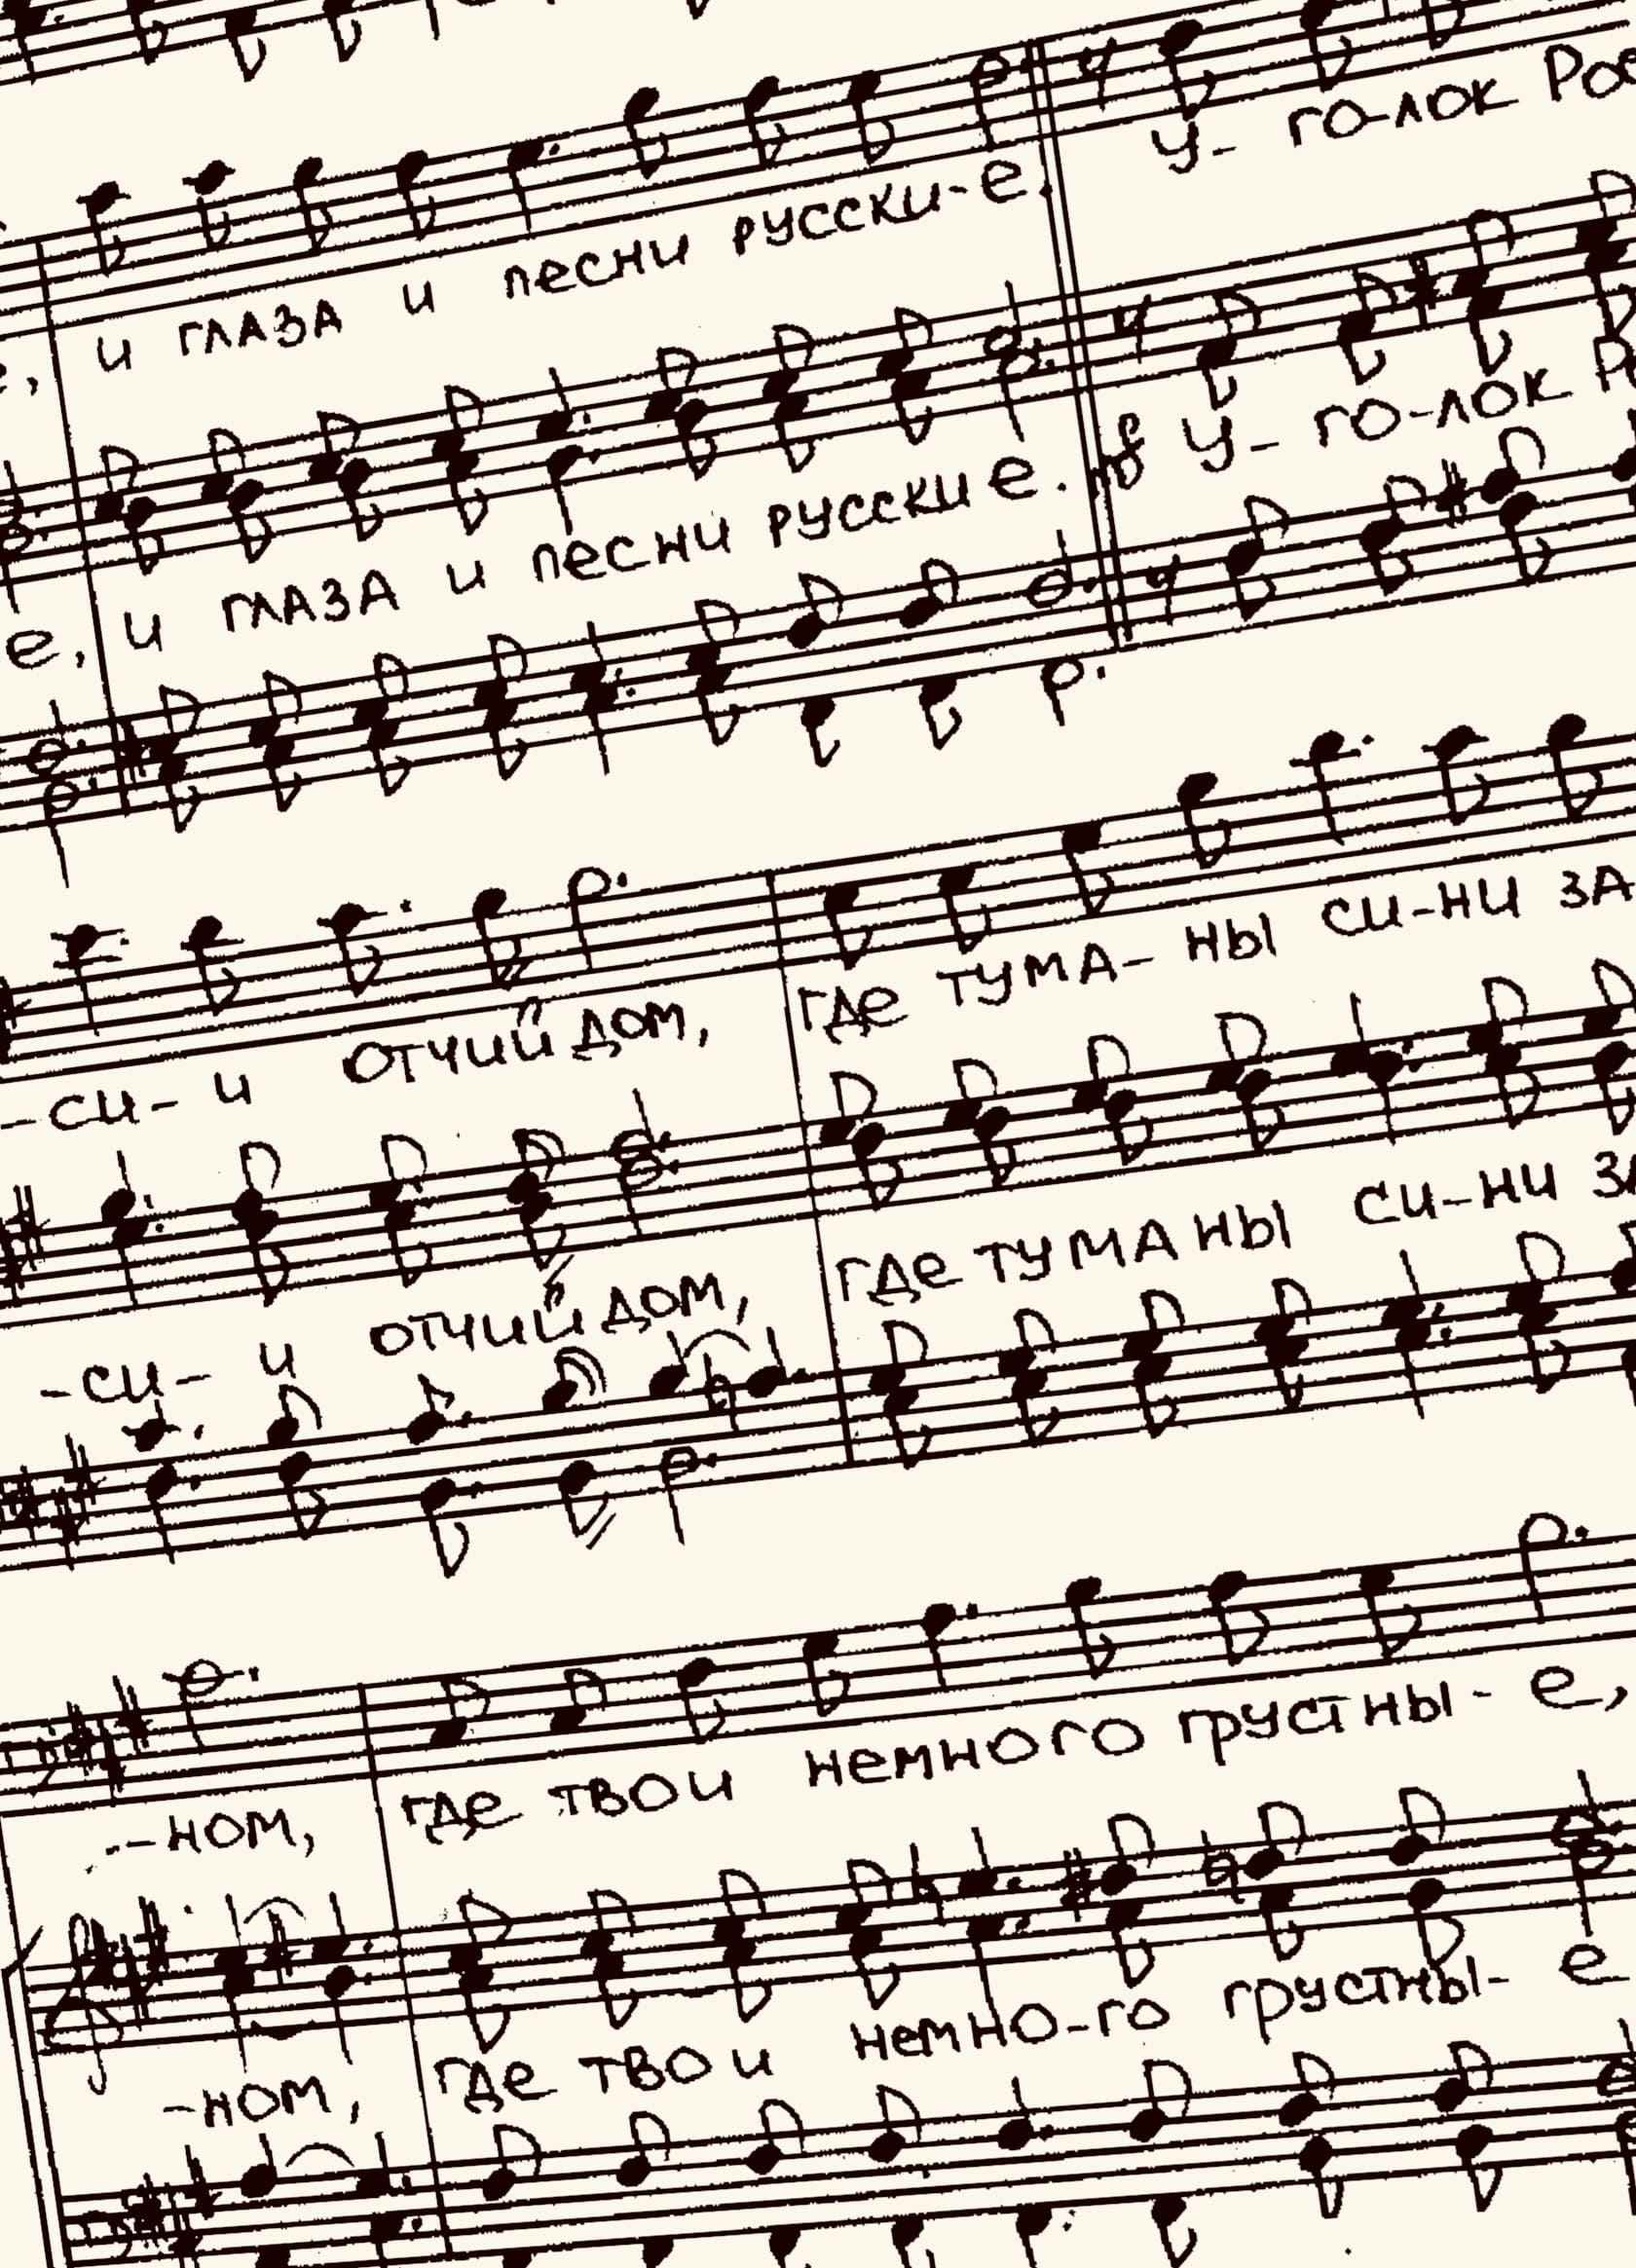 и глаза и песни русски-е. У- го-лок
е, и глаза и песни русски е. mf У- го-лок
-си- и отчий дом, где тума- ны си-ни за
-си- и отчий дом, где туманы си-ни
-ном, где твои немного грустны- е,
-ном, где твои немно-го грустны- е